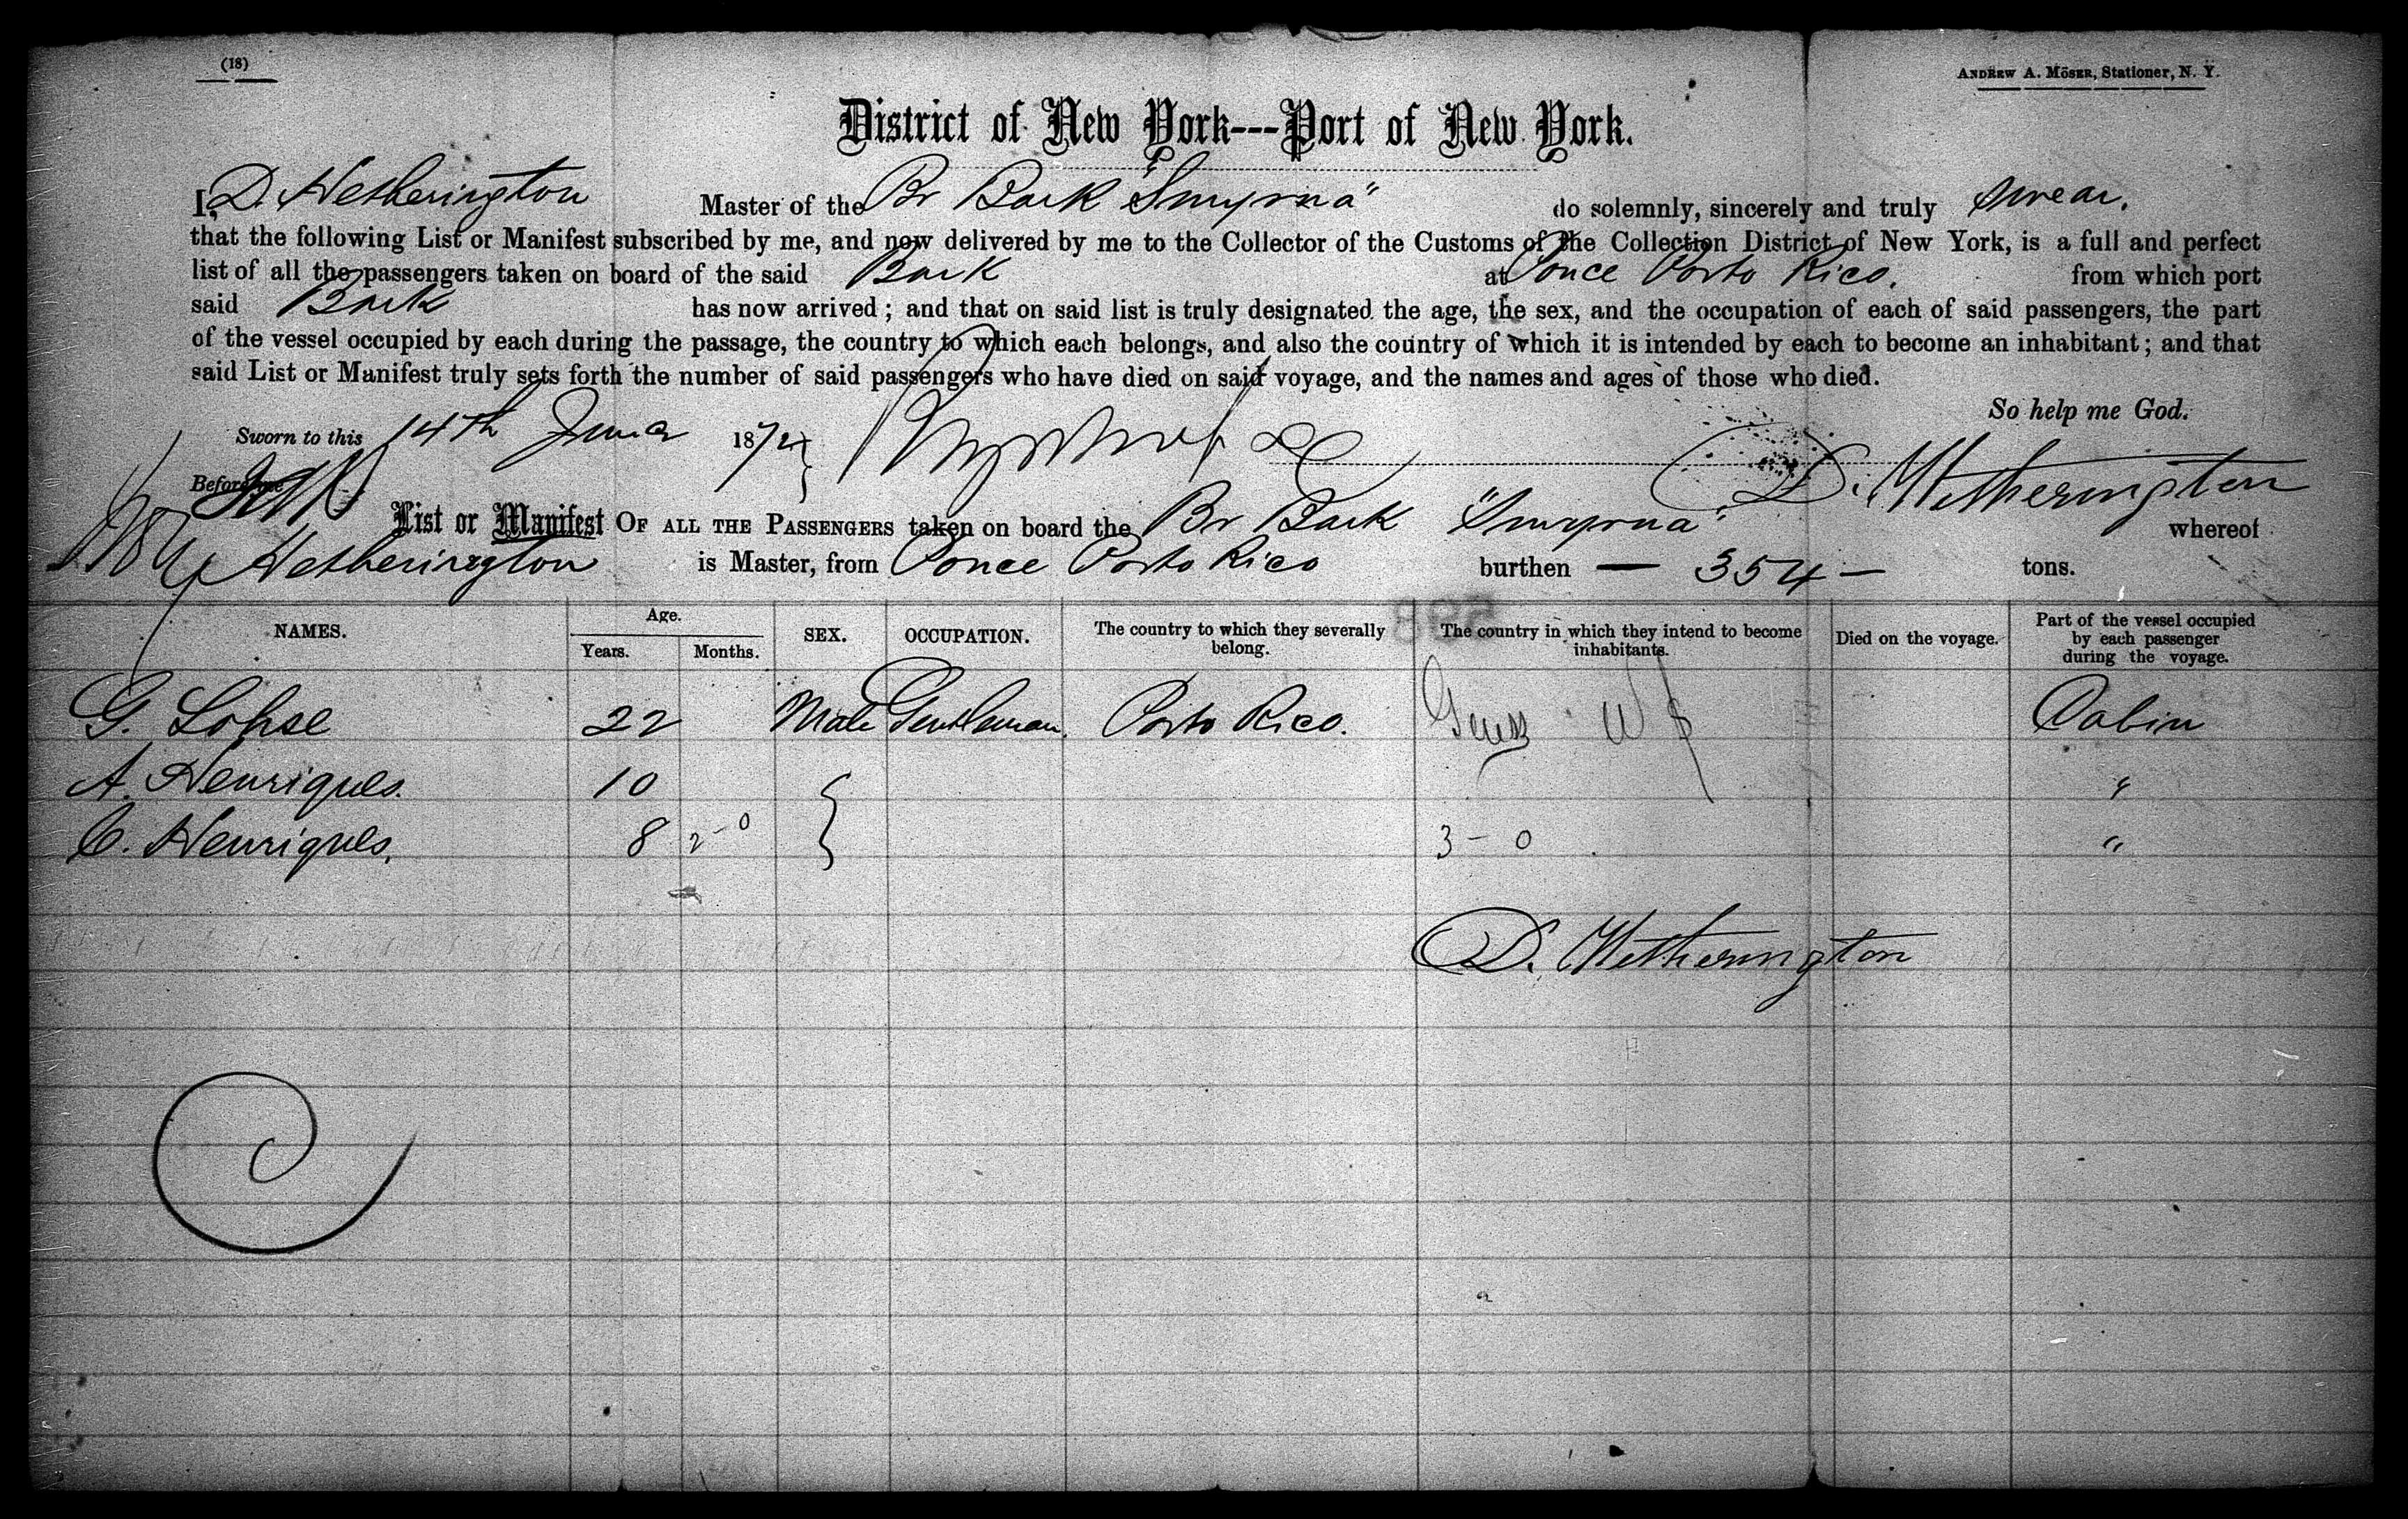 (18)
ANDREW A. MÖSER, Stationer, N. Y.
District of New York---Port of New York.
I, D. Hetherington Master of the Br Bark "Smyrna" do solemnly, sincerely and truly swear.
that the following List or Manifest subscribed by me, and now delivered by me to the Collector of the Customs of the Collection District of New York, is a full and perfect
list of all the passengers taken on board of the said Bark at Ponce Porto Rico. from which port
said Bark has now arrived; and that on said list is truly designated the age, the sex, and the occupation of each of said passengers, the part
of the vessel occupied by each during the passage, the country to which each belongs, and also the country of which it is intended by each to become an inhabitant; and that
said List or Manifest truly sets forth the number of said passengers who have died on said voyage, and the names and ages of those who died.
So help me God.
Sworn to this 14th June 1872
D. Hetherington
Before me
List or Manifest OF ALL THE PASSENGERS taken on board the Br Bark "Smyrna" whereof
Hetherington is Master, from Ponce Porto Rico burthen — 354 — tons.
NAMES. Age. Years. Months. SEX. OCCUPATION. The country to which they severally belong. The country in which they intend to become inhabitants. Died on the voyage. Part of the vessel occupied by each passenger during the voyage.
G. Lohse 22 Male Gentleman. Porto Rico. Cabin
A. Henriques. 10 "
C. Henriques. 8 2-0 3-0 "
D. Hetherington